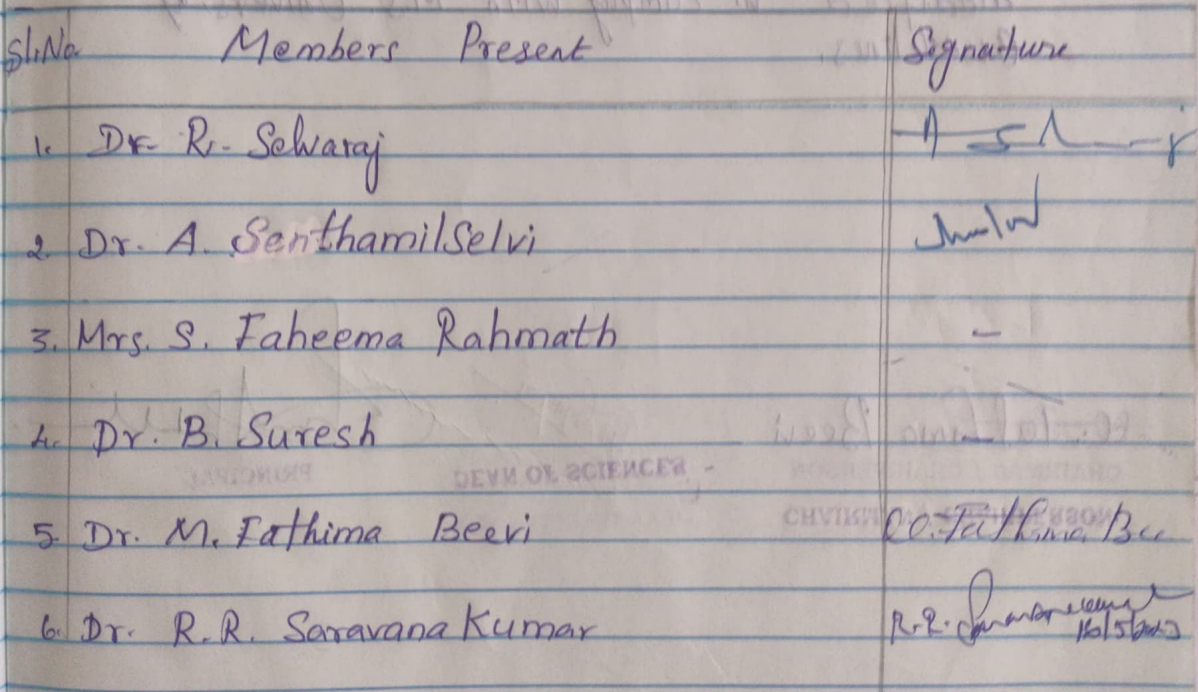 Sl.No. Members Present Signature
1. Dr. R. Selvaraj
2. Dr. A. Senthamilselvi
3. Mrs. S. Faheema Rahmath -
4. Dr. B. Suresh -
5. Dr. M. Fathima Beevi M. Fathima Bee
6. Dr. R.R. Saravana Kumar R.R.